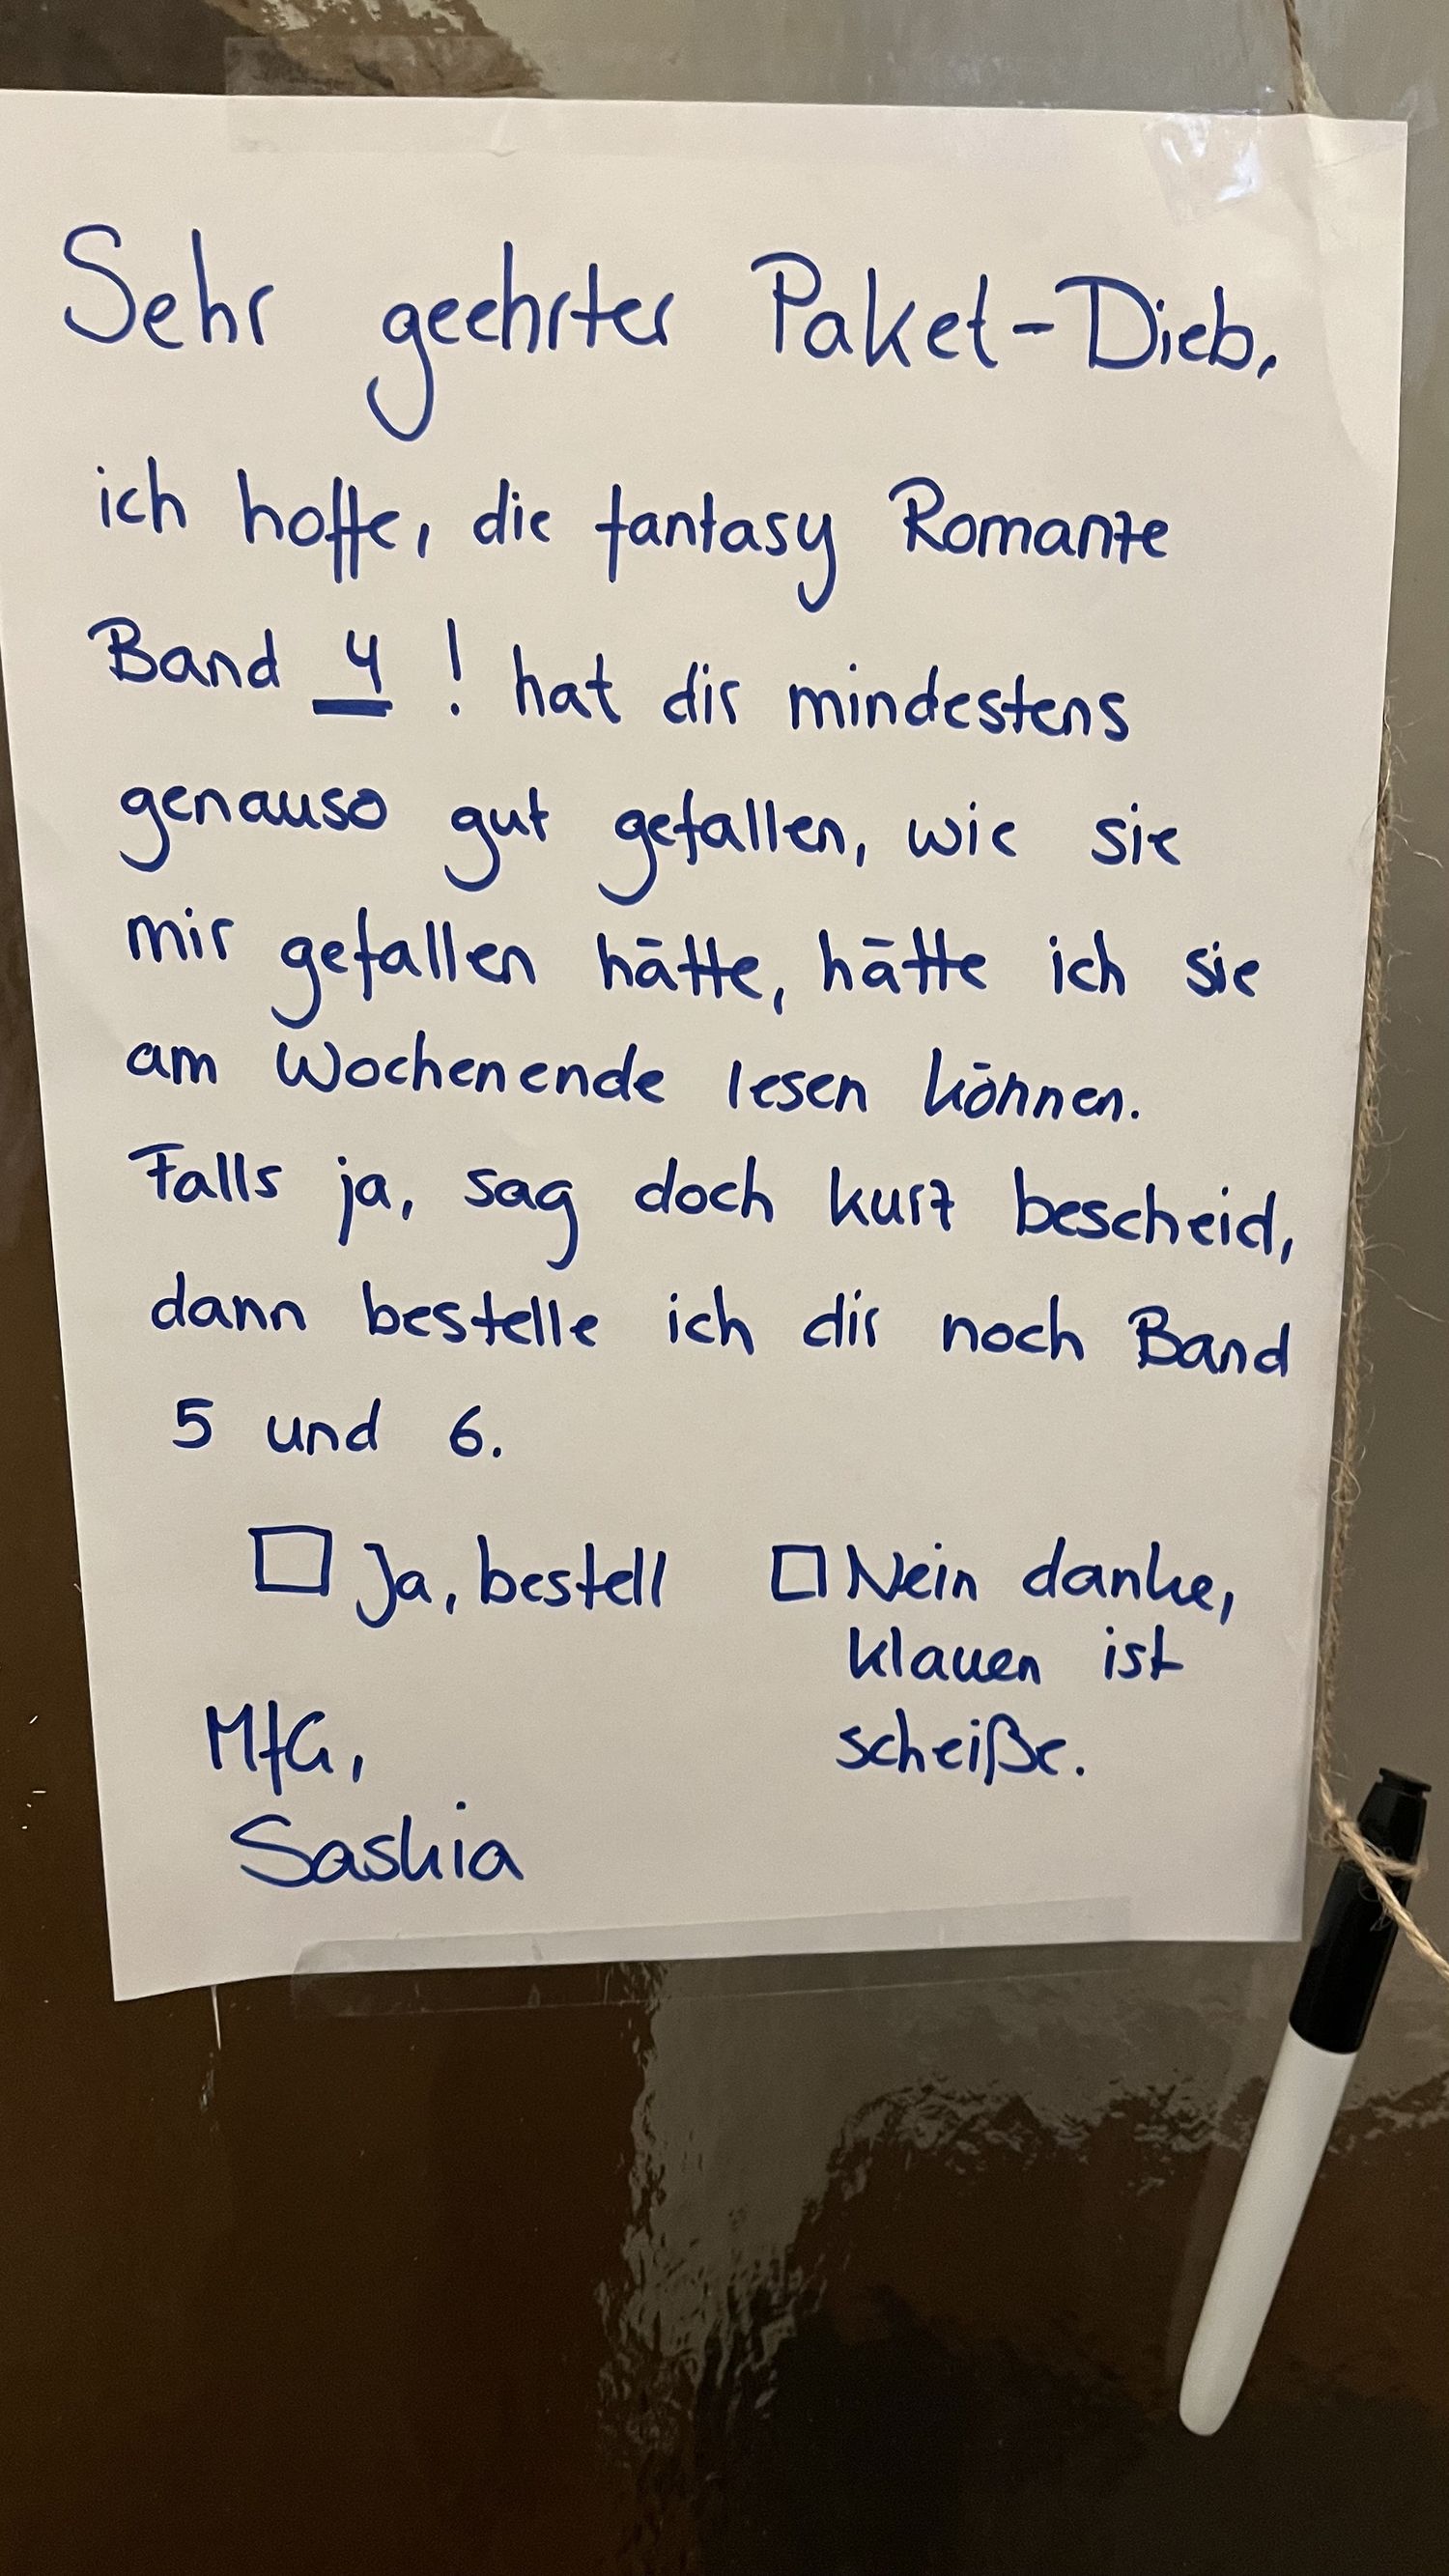 Sehr geehrter Paket-Dieb,
ich hoffe, die fantasy Romanze
Band 4 ! hat dir mindestens
genauso gut gefallen, wie sie
mir gefallen hätte, hätte ich sie
am Wochenende lesen können.
Falls ja, sag doch kurz bescheid,
dann bestelle ich dir noch Band
5 und 6.
☐ Ja, bestell ☐ Nein danke,
klauen ist
scheiße.
MfG,
Saskia